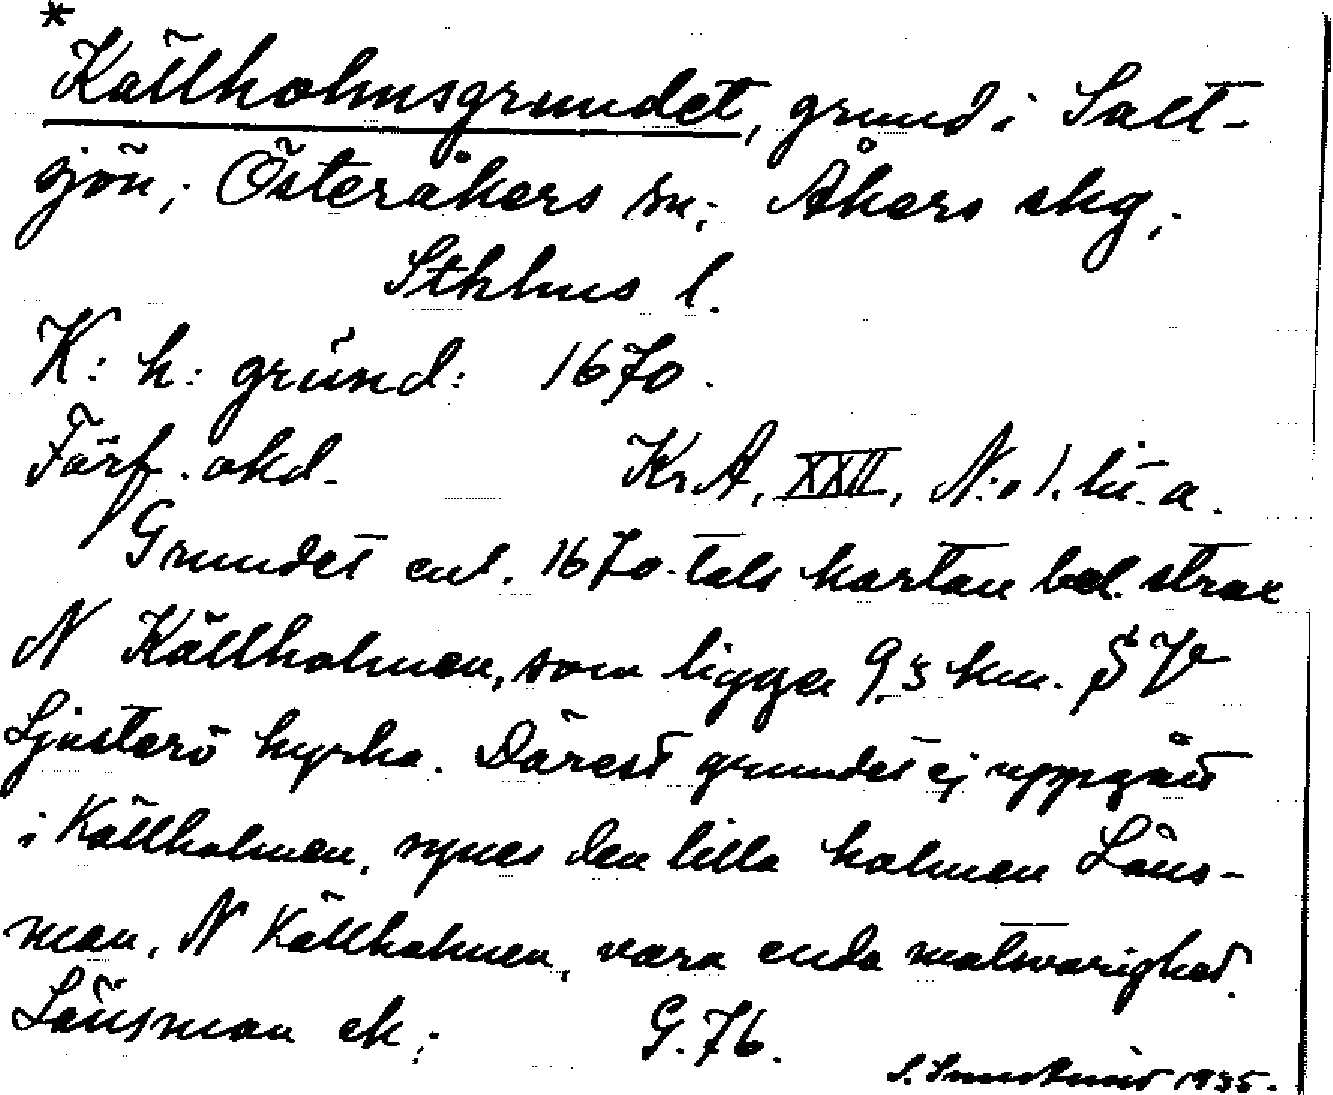 *
Källholmsgrundet, grund i Salt-
sjön; Österåkers sn; Åkers skg;
Sthlms l.
K: h: grund: 1670.
Förf. okd. Kr.A, XXII, N:o 1. lit. a.
Grundet enl. 1670-tals kartan bel. strax
N Källholmen, som ligger 9,5 km. S V
Ljusterö kyrka. Därest grundet ej uppgått
i Källholmen, synes den lilla holmen Läns-
man, N Källholmen, vara enda motsvarighet.
Länsman ek; G.76.
1935.